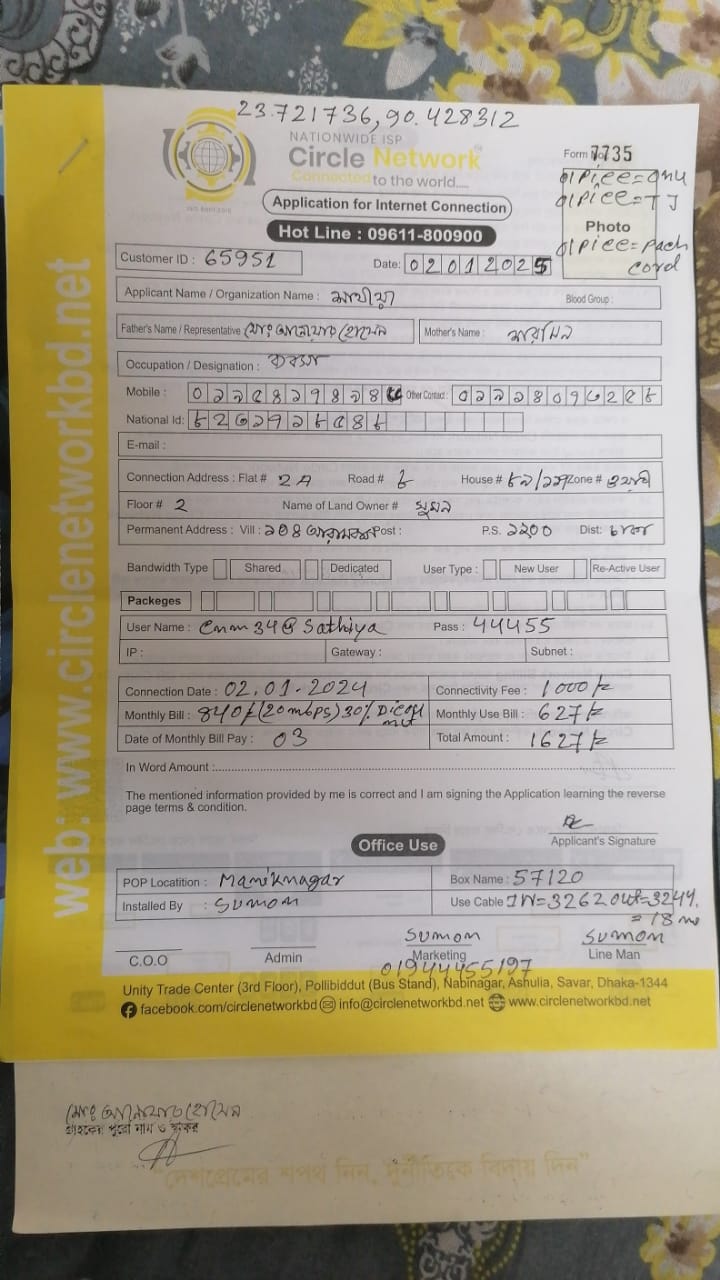 23.721736,90.428312
NATIONWIDE ISP
Circle Network
Connected to the world.....
ISO 9001:2015
Form No 7735
01 Piece=onu
01 Piece=TJ
Photo
01 Piece=Pach
cord
Application for Internet Connection
Hot Line : 09611-800900
Customer ID : 65951
Date: 02012025
Applicant Name / Organization Name :
Blood Group :
Father's Name / Representative মোঃ আনোয়ার হোসেন
Mother's Name :
Occupation / Designation :
Mobile :
Other Contact :
National Id:
E-mail :
Connection Address : Flat # 2A Road # ৮ House # Zone # ওয়ারী
Floor # 2 Name of Land Owner # সুমন
Permanent Address : Vill : Post : P.S. ১২০০ Dist: ঢাকা
Bandwidth Type Shared Dedicated User Type : New User Re-Active User
Packeges
User Name : Cnm34@Sathiya Pass : 44455
IP : Gateway : Subnet :
Connection Date : 02.01-2024 Connectivity Fee : 1000/=
Monthly Bill : 840/=(20mbps)30% Monthly Use Bill : 627/=
Date of Monthly Bill Pay : 03 Total Amount : 1627/=
In Word Amount :
The mentioned information provided by me is correct and I am signing the Application learning the reverse
page terms & condition.
Applicant's Signature
Office Use
POP Locatition : Maniknagar Box Name : 57120
Installed By : Sumon Use Cable IN=3262 out=3244.
= 18 m
Sumon Sumon
C.O.O Admin Marketing Line Man
01944455197
Unity Trade Center (3rd Floor), Pollibiddut (Bus Stand), Nabinagar, Ashulia, Savar, Dhaka-1344
facebook.com/circlenetworkbd info@circlenetworkbd.net www.circlenetworkbd.net
web: www.circlenetworkbd.net
মোঃ আনোয়ার হোসেন
গ্রাহকের পুরো নাম ও স্বাক্ষর
"দেশপ্রেমের শপথ নিন, দুর্নীতিকে বিদায় দিন"